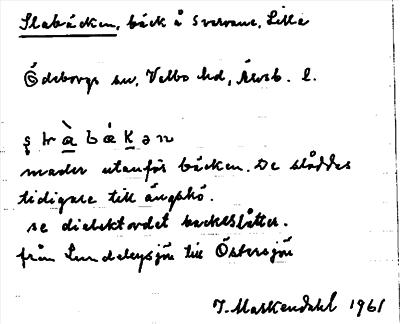 Slabäcken, bäck å Svarvare, Lilla
Ödeborgs sn, Valbo hd, Älvsb. l.
mader utanför bäcken. De slåddes
tidigare till ängshö.
se dialektordet backeslåtter.
från Lundalsysjön till Östersjön
J. Markendahl 1961